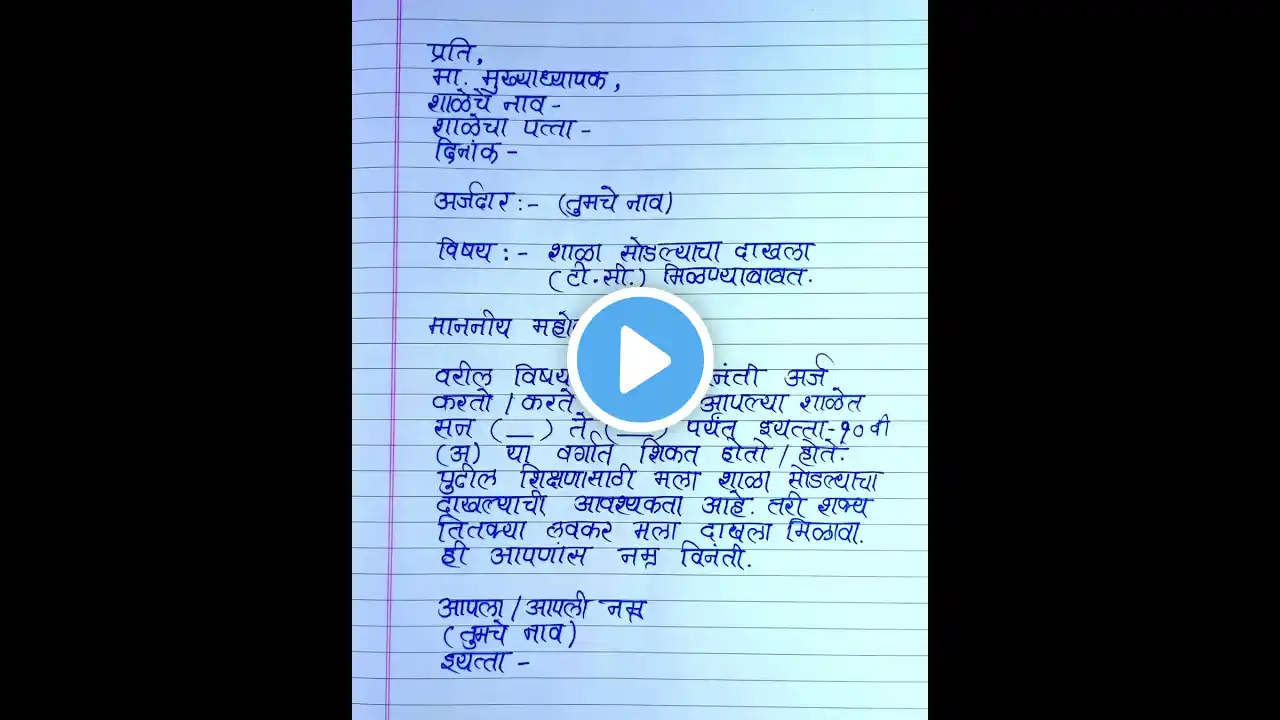 प्रति,
मा. मुख्याध्यापक,
शाळेचे नाव -
शाळेचा पत्ता -
दिनांक -
अर्जदार :- (तुमचे नाव)
विषय :- शाळा सोडल्याचा दाखला
(टी.सी.) मिळण्याबाबत.
माननीय
वरील अर्ज
करतो / करते आपल्या शाळेत
सन (__) ते (__) पर्यंत इयत्ता-१०वी
(अ) या वर्गात शिकत होतो / होते.
पुढील शिक्षणासाठी मला शाळा सोडल्याचा
दाखल्याची आवश्यकता आहे. तरी शक्य
तितक्या लवकर मला दाखला मिळावा.
ही आपणांस नम्र विनंती.
आपला / आपली नम्र
(तुमचे नाव)
इयत्ता -